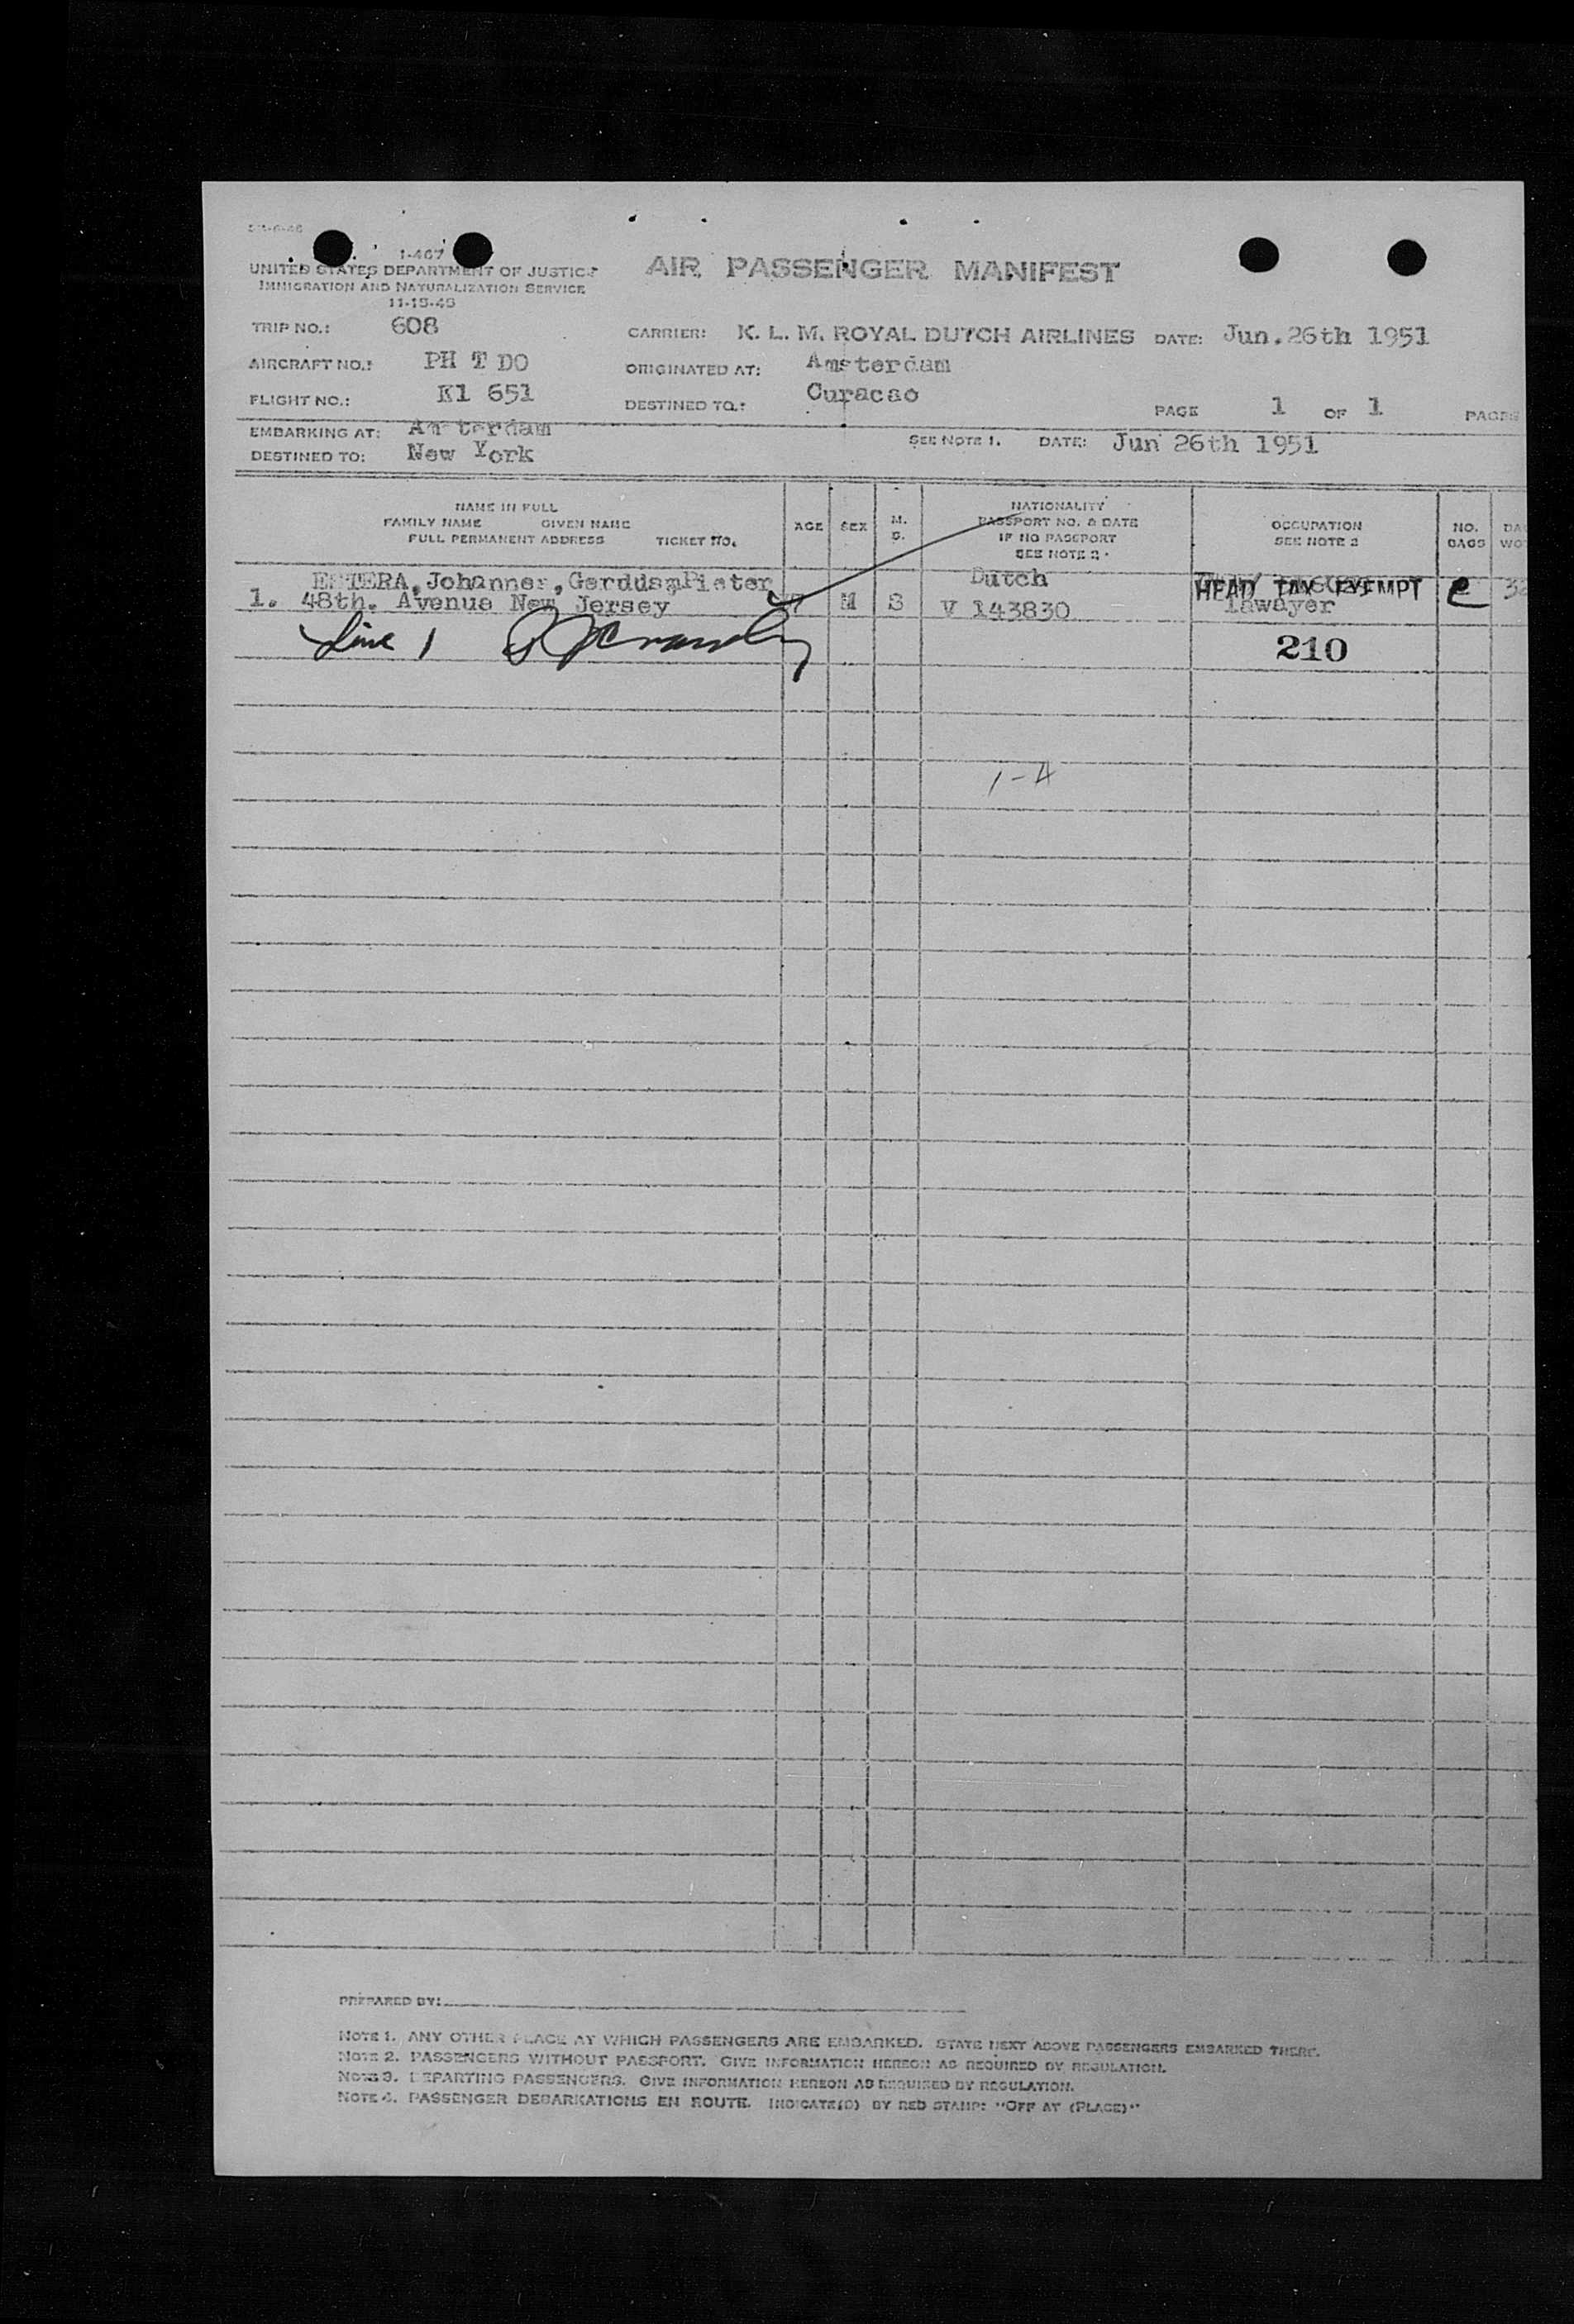 1-467
UNITED STATES DEPARTMENT OF JUSTICE
IMMIGRATION AND NATURALIZATION SERVICE
11-15-45
AIR PASSENGER MANIFEST
TRIP NO.: 608
CARRIER: K. L. M. ROYAL DUTCH AIRLINES DATE: Jun.26th 1951
AIRCRAFT NO.: PH T DO
ORIGINATED AT: Amsterdam
FLIGHT NO.: Kl 651
DESTINED TO.: Curacao
PAGE 1 OF 1 PAGES
EMBARKING AT: Am terdam
SEE NOTE 1. DATE: Jun 26th 1951
DESTINED TO: New York
NAME IN FULL
FAMILY NAME GIVEN NAME
FULL PERMANENT ADDRESS TICKET NO.
AGE
SEX
M.
S.
NATIONALITY
PASSPORT NO. & DATE
IF NO PASSPORT
SEE NOTE 2
OCCUPATION
SEE NOTE 2
NO.
BAGS
Johannes, Pieter Dutch HEAD TAX EXEMPT
1. 48th. Avenue New Jersey M S V 143830 lawayer
Line 1 210
1-4
PREPARED BY:
NOTE 1. ANY OTHER PLACE AT WHICH PASSENGERS ARE EMBARKED. STATE NEXT ABOVE PASSENGERS EMBARKED THERE.
NOTE 2. PASSENGERS WITHOUT PASSPORT. GIVE INFORMATION HEREON AS REQUIRED BY REGULATION.
NOTE 3. DEPARTING PASSENGERS. GIVE INFORMATION HEREON AS REQUIRED BY REGULATION.
NOTE 4. PASSENGER DEBARKATIONS EN ROUTE. INDICATE(D) BY RED STAMP: "OFF AT (PLACE)"